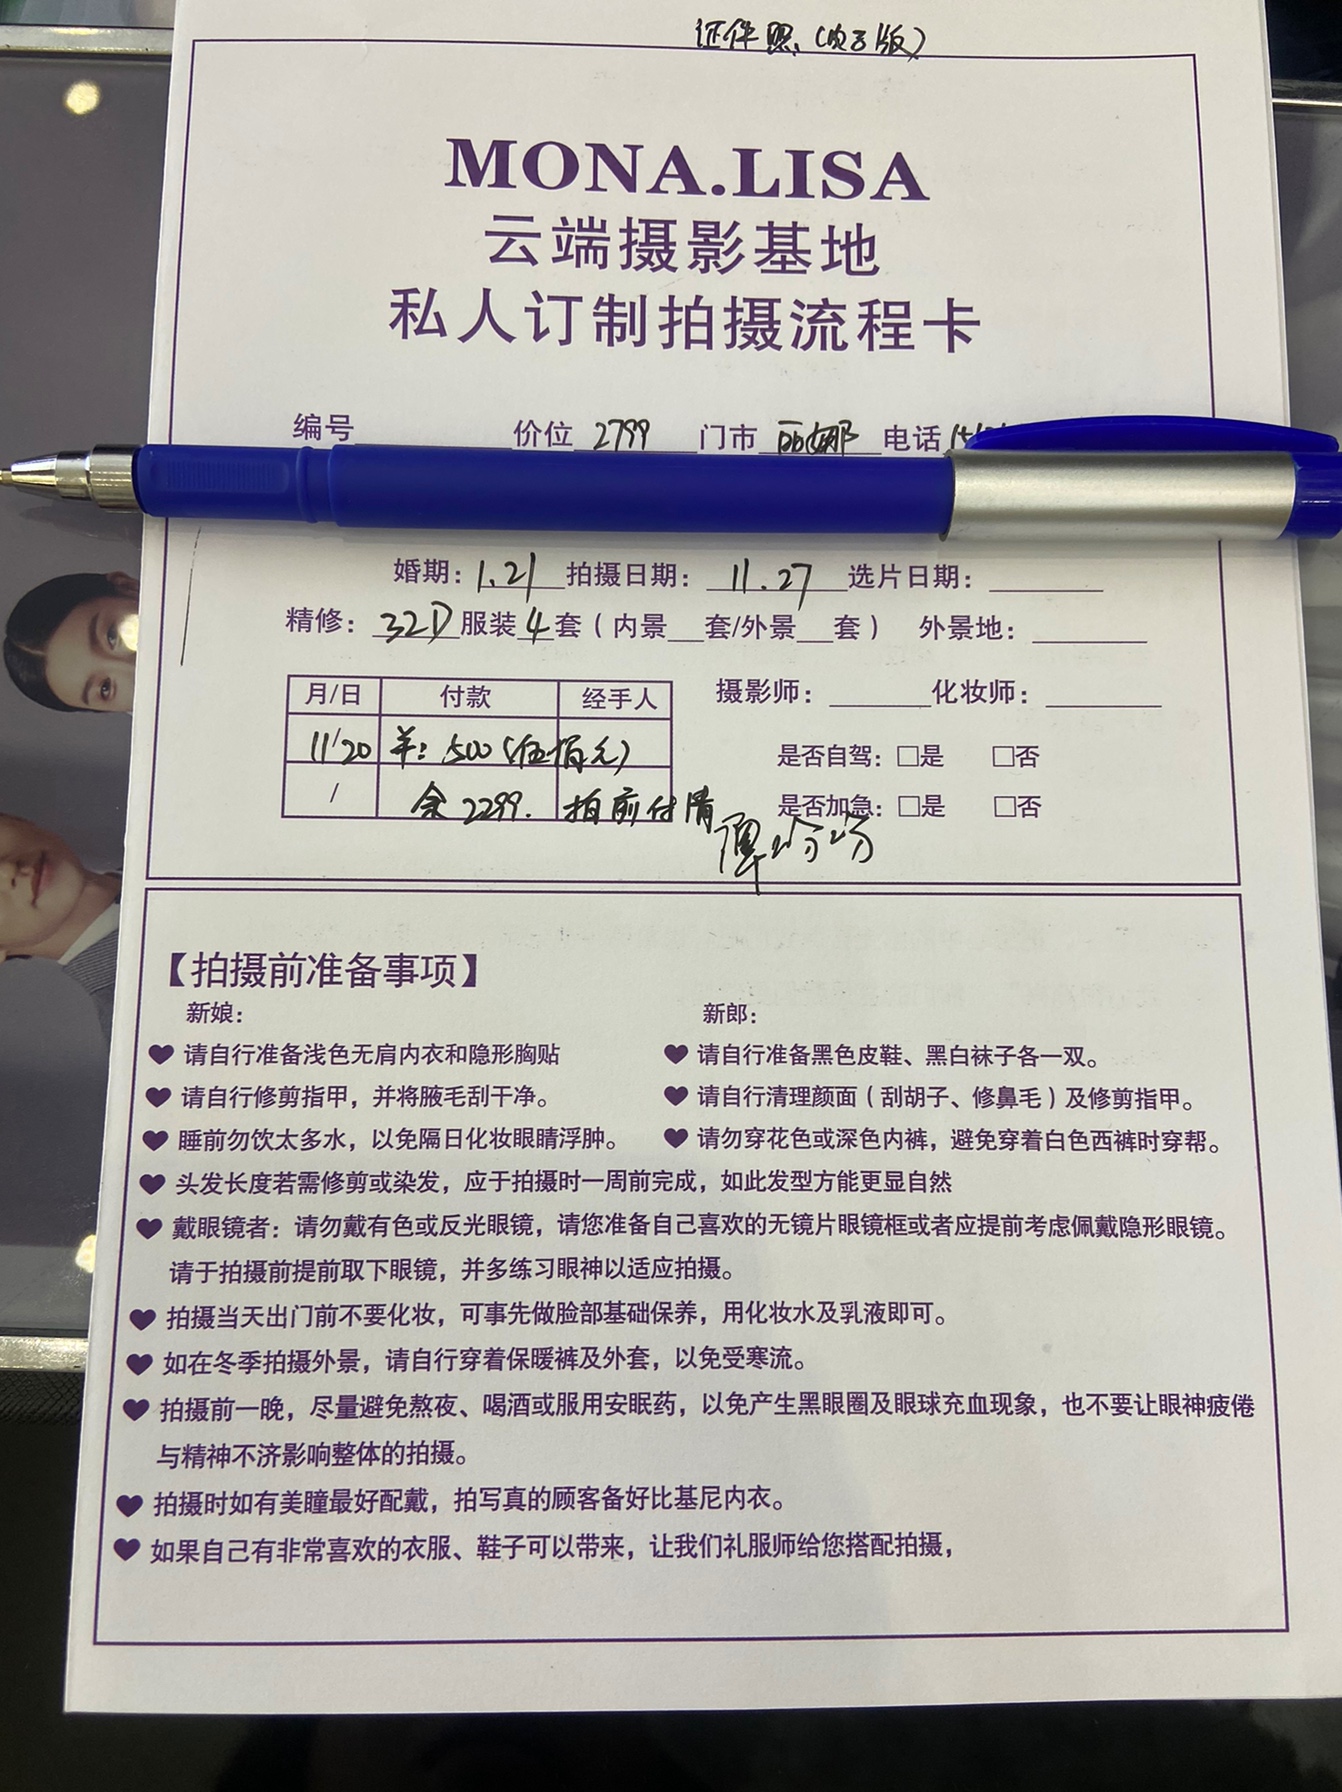 证件照（电子版）
MONA.LISA
云端摄影基地
私人订制拍摄流程卡
编号 价位 2799 门市 丽娜 电话
婚期：1.21 拍摄日期：11.27 选片日期：
精修：32P 服装 4 套（内景 套/外景 套） 外景地：
摄影师： 化妆师：
月/日 付款 经手人
11/20 500（伍佰元）
是否自驾：□是 □否
/ 余2299. 拍前付清
是否加急：□是 □否
【拍摄前准备事项】
新娘：
请自行准备浅色无肩内衣和隐形胸贴
请自行修剪指甲，并将腋毛刮干净。
睡前勿饮太多水，以免隔日化妆眼睛浮肿。
新郎：
请自行准备黑色皮鞋、黑白袜子各一双。
请自行清理颜面（刮胡子、修鼻毛）及修剪指甲。
请勿穿花色或深色内裤，避免穿着白色西裤时穿帮。
头发长度若需修剪或染发，应于拍摄时一周前完成，如此发型方能更显自然
戴眼镜者：请勿戴有色或反光眼镜，请您准备自己喜欢的无镜片眼镜框或者应提前考虑佩戴隐形眼镜。
请于拍摄前提前取下眼镜，并多练习眼神以适应拍摄。
拍摄当天出门前不要化妆，可事先做脸部基础保养，用化妆水及乳液即可。
如在冬季拍摄外景，请自行穿着保暖裤及外套，以免受寒流。
拍摄前一晚，尽量避免熬夜、喝酒或服用安眠药，以免产生黑眼圈及眼球充血现象，也不要让眼神疲倦
与精神不济影响整体的拍摄。
拍摄时如有美瞳最好配戴，拍写真的顾客备好比基尼内衣。
如果自己有非常喜欢的衣服、鞋子可以带来，让我们礼服师给您搭配拍摄，